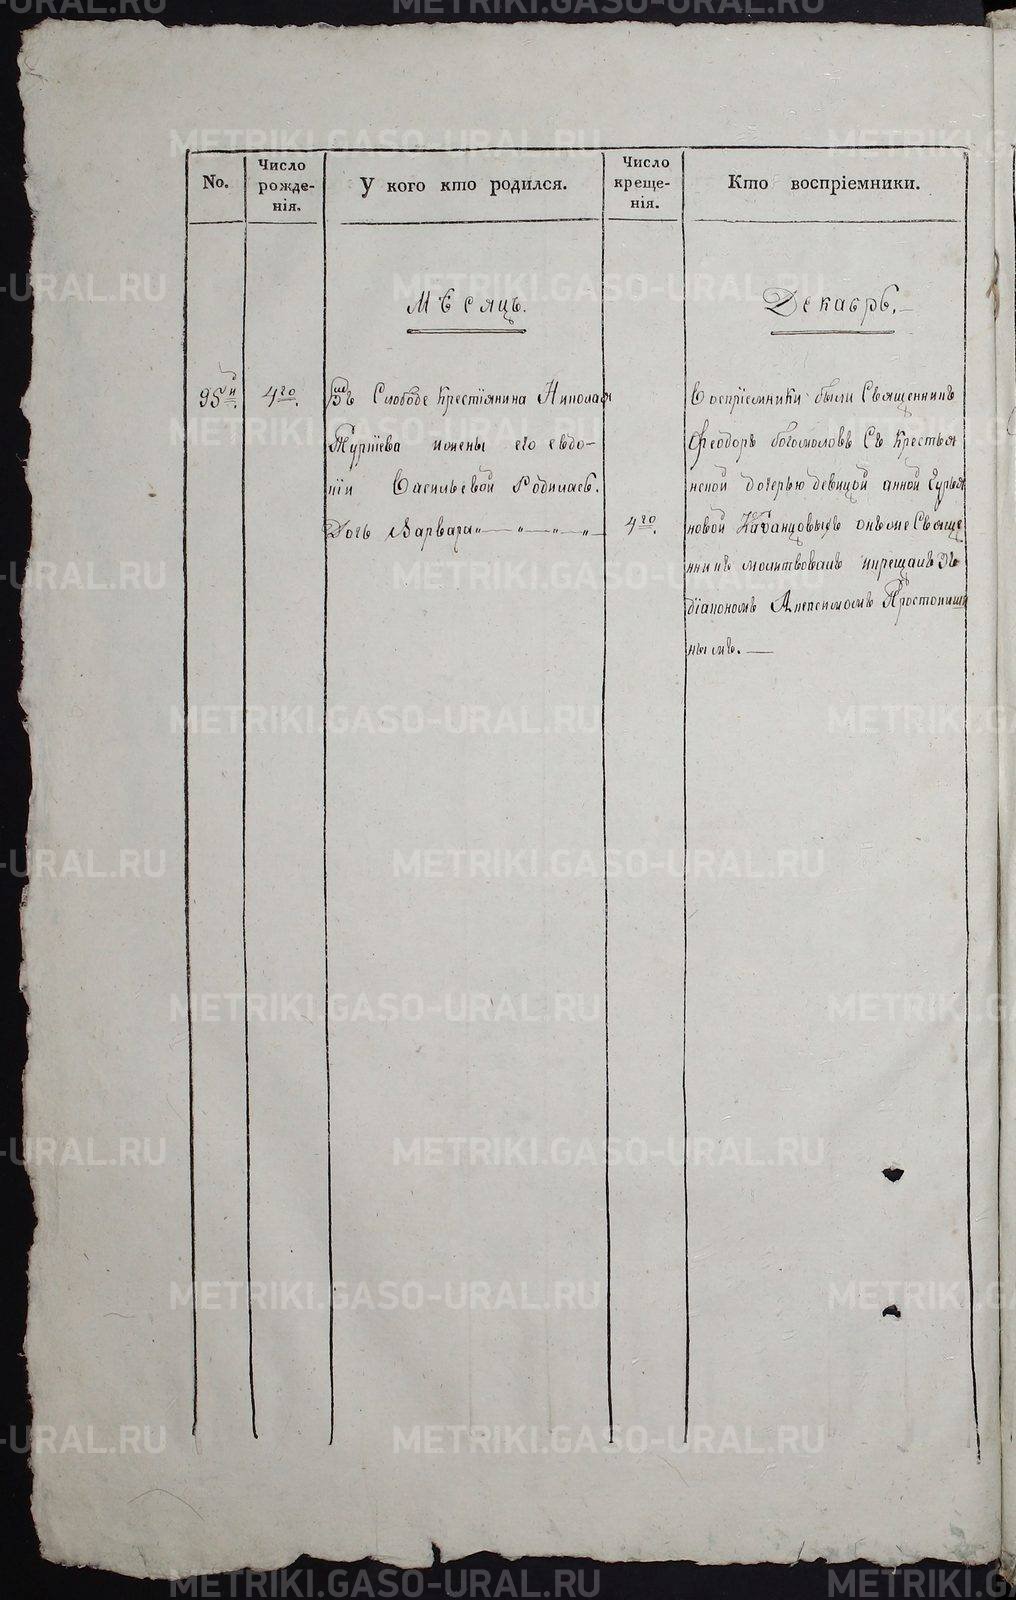 No.
Число рожде-нія.
У кого кто родился.
Число креще-нія.
Кто воспріемники.
Мѣсяцъ.
Декабрь.
95й.
4го.
Въ Слободе Крестіянина Николая
Гуріева ижены его евдо-
кіи Васильевой Родилась.
Дочь Варвара
4го.
Воспріемники были Священникъ
Феодоръ богомоловъ Съ Крестья
нской дочерью девицой анной Гурья
новой Кабанцовыхъ онъже Свяще
нникъ молитвовалъ икрещалъ Зъ
діакономъ Алексимомъ Простопиши
нымъ.
METRIKI.GASO-URAL.RU